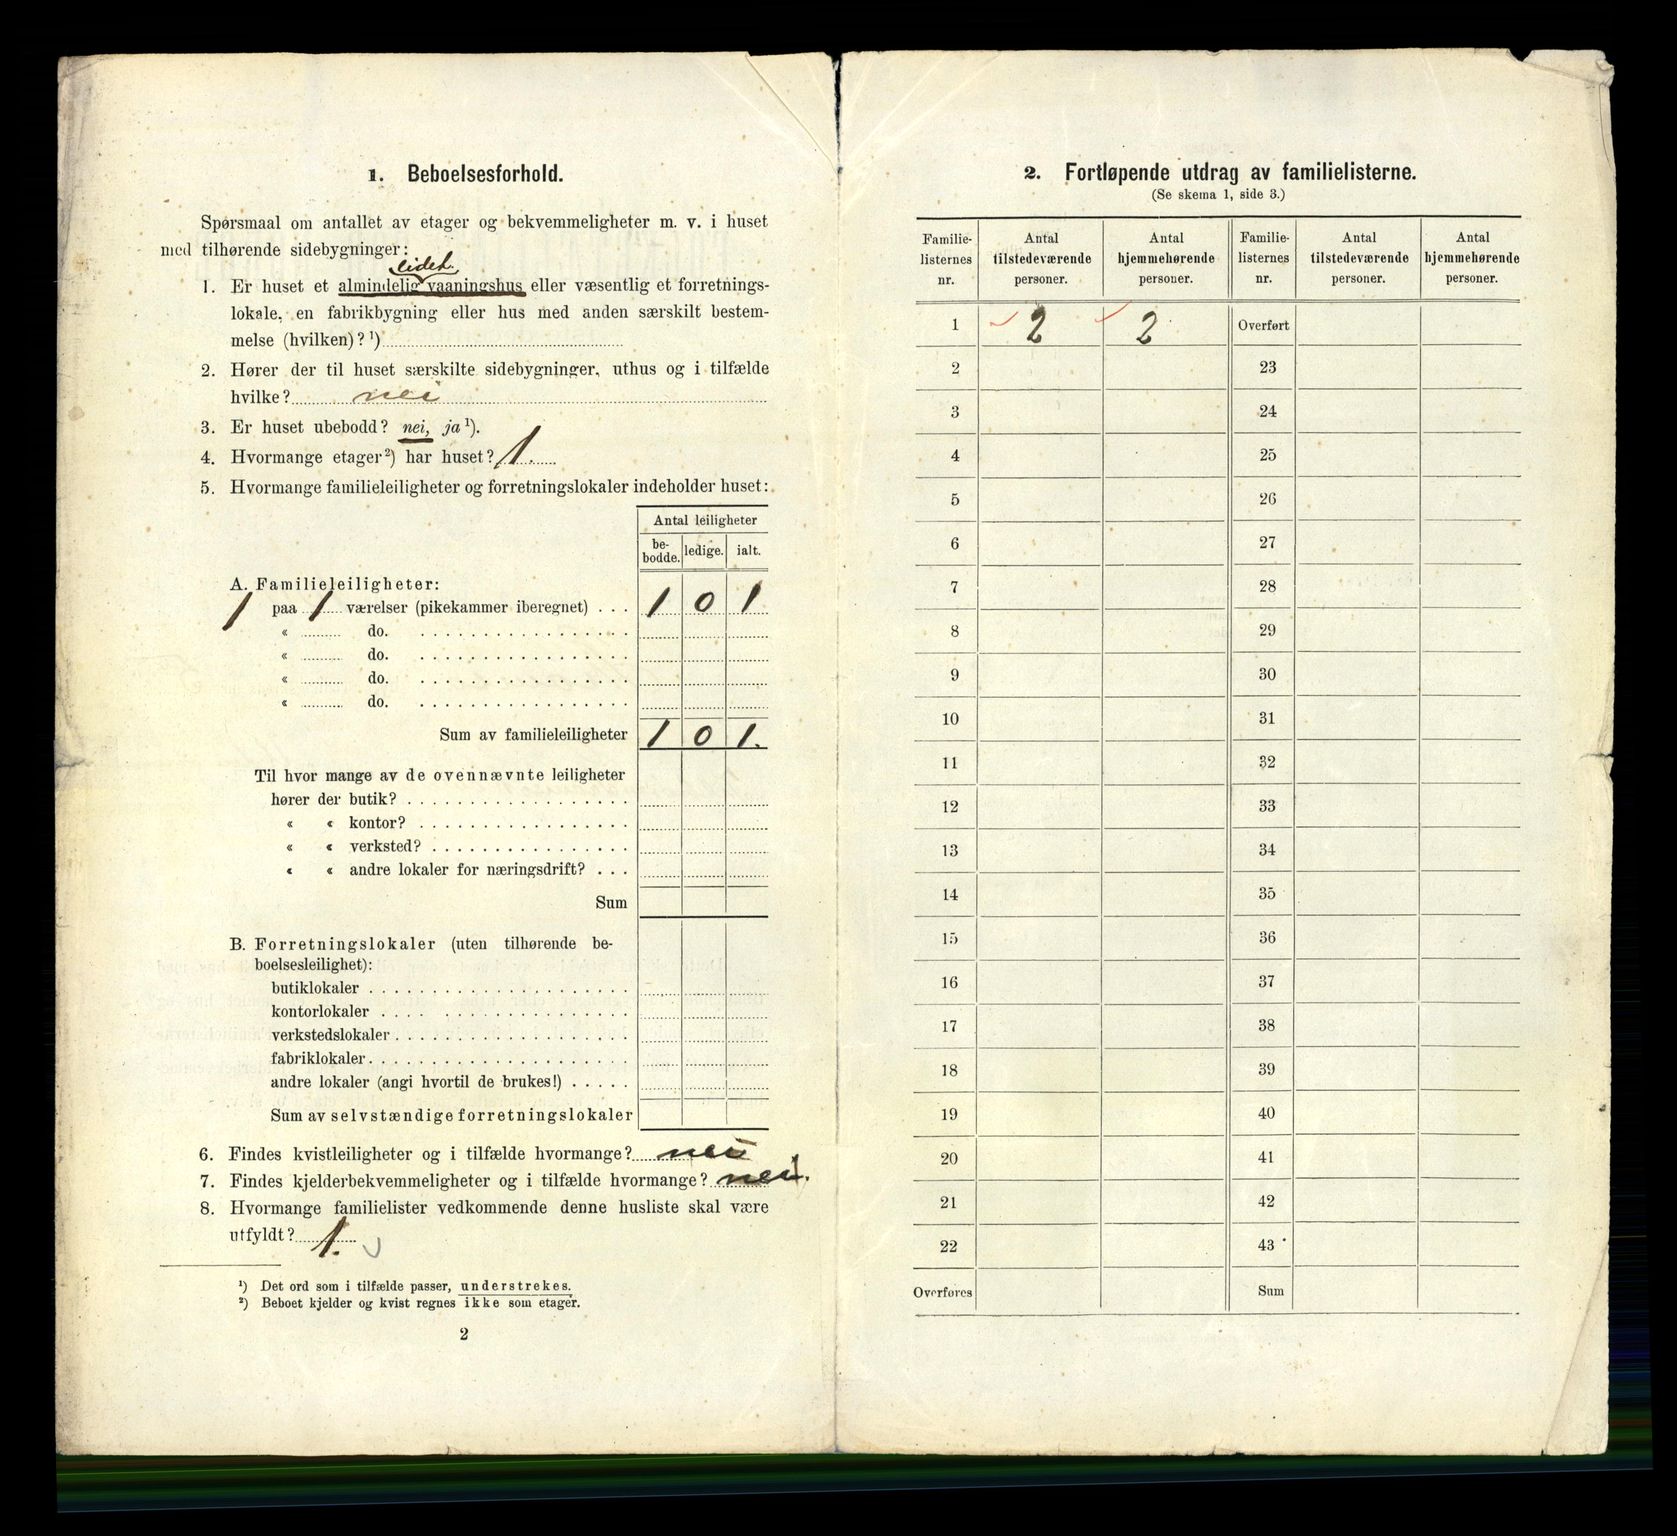 1. Beboelsesforhold.
Spørsmaal om antallet av etager og bekvemmeligheter m. v. i huset
med tilhørende sidebygninger:
lidet
1. Er huset et almindelig vaaningshus eller væsentlig et forretnings-
lokale, en fabrikbygning eller hus med anden særskilt bestem-
melse (hvilken)? ¹)
2. Hører der til huset særskilte sidebygninger, uthus og i tilfælde
hvilke? nei
3. Er huset ubebodd? nei, ja ¹).
4. Hvormange etager ²) har huset? 1.
5. Hvormange familieleiligheter og forretningslokaler indeholder huset:
Antal leiligheter
be-bodde. ledige. ialt.
A. Familieleiligheter:
1 paa 1 værelser (pikekammer iberegnet) . . . 1 0 1
« do.
« do.
« do.
« do.
Sum av familieleiligheter 1 0 1.
Til hvor mange av de ovennævnte leiligheter
hører der butik?
« « kontor?
« « verksted?
« « andre lokaler for næringsdrift? . . .
Sum
B. Forretningslokaler (uten tilhørende be-
boelsesleilighet):
butiklokaler
kontorlokaler
verkstedslokaler
fabriklokaler
andre lokaler (angi hvortil de brukes!)
Sum av selvstændige forretningslokaler
6. Findes kvistleiligheter og i tilfælde hvormange? nei
7. Findes kjelderbekvemmeligheter og i tilfælde hvormange? nei.
8. Hvormange familielister vedkommende denne husliste skal være
utfyldt? 1.
¹) Det ord som i tilfælde passer, understrekes.
²) Beboet kjelder og kvist regnes ikke som etager.
2
2. Fortløpende utdrag av familielisterne.
(Se skema 1, side 3.)
Familie- Antal Antal Familie- Antal Antal
listernes tilstedeværende hjemmehørende listernes tilstedeværende hjemmehørende
nr. personer. personer. nr. personer. personer.
1 2 2 Overført
2 23
3 24
4 25
5 26
6 27
7 28
8 29
9 30
10 31
11 32
12 33
13 34
14 35
15 36
16 37
17 38
18 39
19 40
20 41
21 42
22 43
Overføres Sum